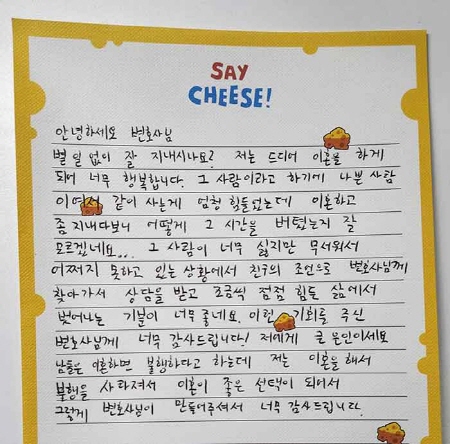 SAY
CHEESE!
안녕하세요 변호사님
별 일 없이 잘 지내시나요? 저는 드디어 이혼을 하게
되어 너무 행복합니다. 그 사람이라고 하기에 나쁜 사람
이여서 같이 사는게 엄청 힘들었는데 이혼하고
좀 지내다보니 어떻게 그 시간을 버텼는지 잘
모르겠네요... 그 사람이 너무 싫지만 무서워서
어쩌지 못하고 있는 상황에서 친구의 조언으로 변호사님께
찾아가서 상담을 받고 조금씩 점점 힘든 삶에서
벗어나는 기분이 너무 좋네요. 이런 기회를 주신
변호사님께 너무 감사드립니다! 저에게 큰 은인이세요
남들은 이혼하면 불행하다고 하는데 저는 이혼을 해서
불행을 사라져서 이혼이 좋은 선택이 되어서
그렇게 변호사님이 만들어주셔서 너무 감사드립니다.